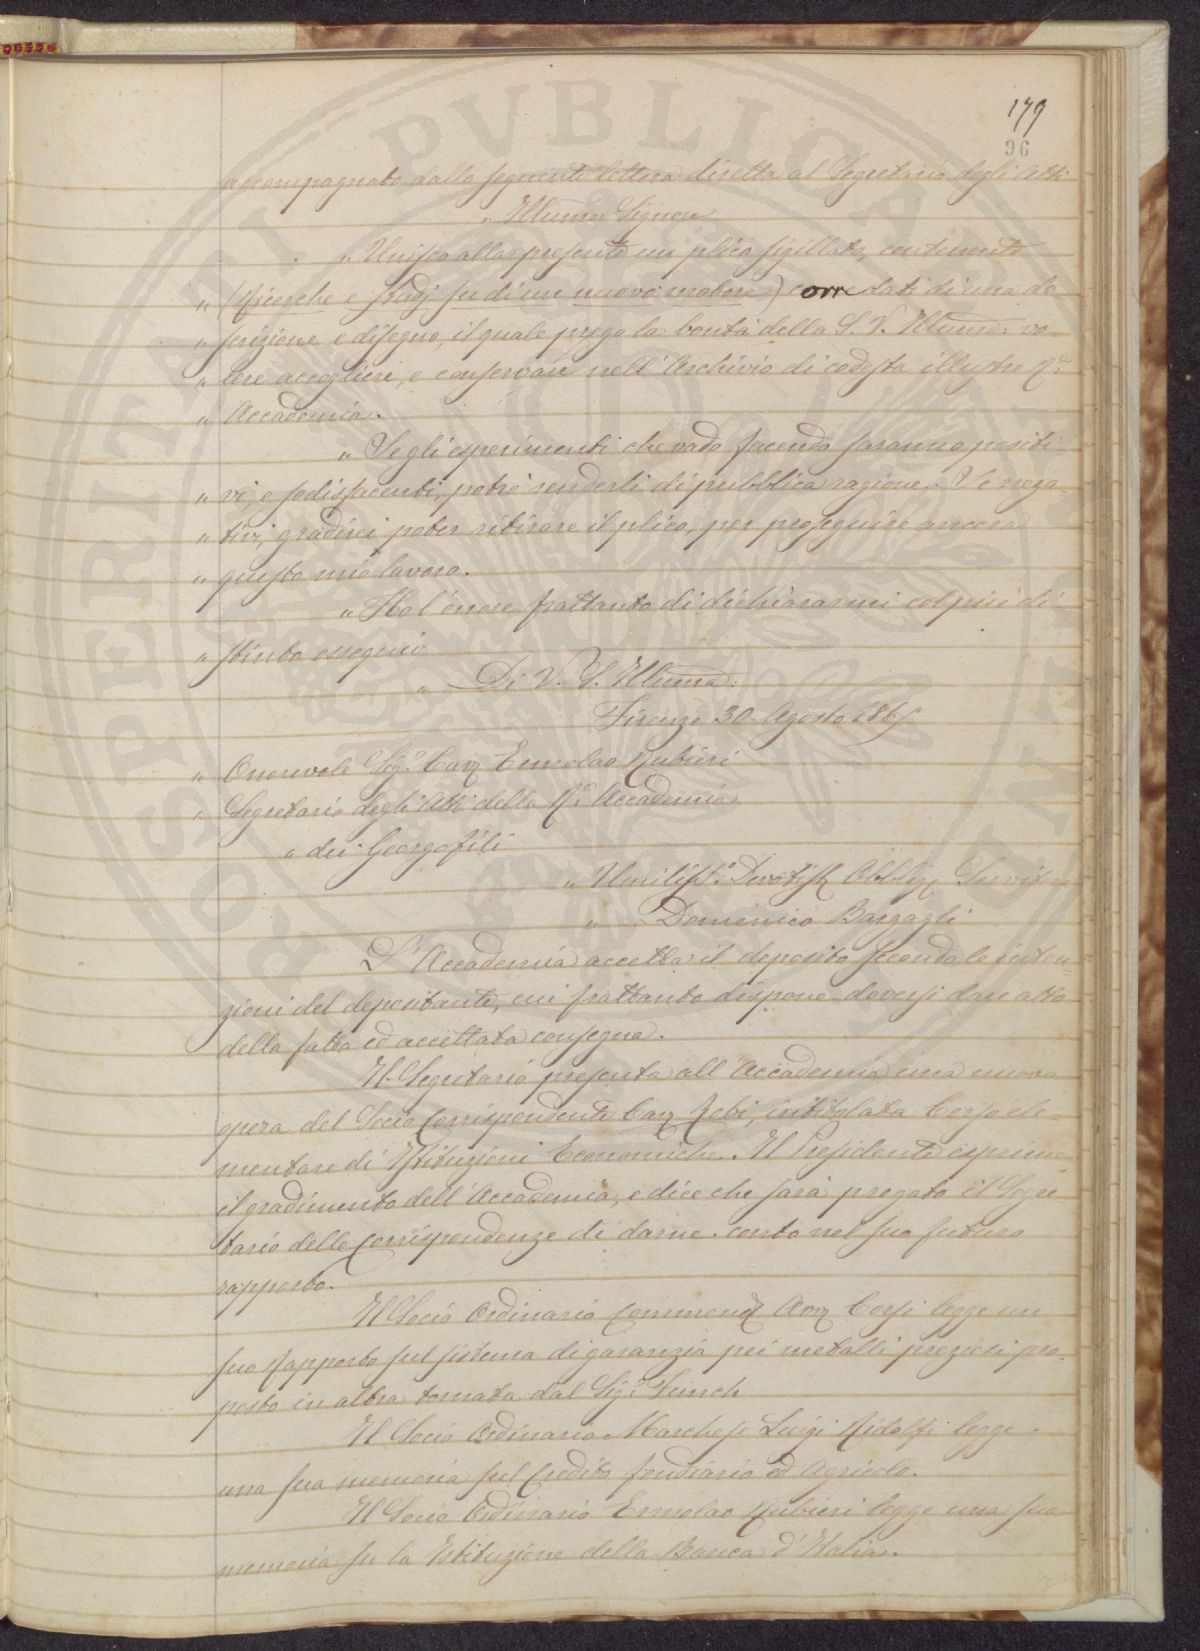 179
96
accompagnato dalla seguente lettera diretta al Segretario degli Atti
„ Illumo Signore
„ Unisco alla presente un plico sigillato, contenente
„ (Ricerche e studj su di un nuovo motore) corredati di una de
„ scrizione e disegno, il quale prego la bontà della S. V. Illuma: vo-
„ lere accogliere, e conservare nell'Archivio di codesta illustre Ra
„ Accademia.
„ Se gli esperimenti che vado facendo saranno positi
„ vi, e sodisfacenti, potrò renderli di pubblica ragione. Se nega
„ tivi, gradirei poter ritirare il plico, per proseguire ancora
„ questo mio lavoro.
„ Ho l'onore frattanto di dichiararmi col più di
„ stinto ossequio
„ Di V. S. Illuma:
Firenze 30 Agosto 186
„ Onorevole Sigr Cav Ermolao Rubieri
„ Segretario degli Atti della Ra Accademia
„ dei Georgofili
„ Umiliss.o Devotiss Obblig Servid
„ Domenico Bargagli
L'Accademia accetta il deposito secondo le inten-
zioni del depositante, cui frattanto dispone doversi dare atto
della fatta ed accettata consegna.
Il Segretario presenta all'Accademia una nuova
opera del Socio Corrispondente Cav Zobi, intitolata Corso ele
mentare di Istituzioni Economiche. Il Presidente esprime
il gradimento dell'Accademia, e dice che sarà pregato il Segre
tario delle Corrispondenze di darne conto nel suo futuro
rapporto.
Il Socio Ordinario Commend Avv Corsi legge un
suo Rapporto sul sistema di garanzia pei metalli preziosi pro-
posto in altra tornata dal Sigr
Il Socio Ordinario Marchese Luigi Ridolfi legge
una sua memoria sul Credito fondiario ed Agricolo.
Il Socio Ordinario Ermolao Rubieri legge una sua
memoria su la Istituzione della Banca d'Italia.
PROSPERITATI PVBLICAE